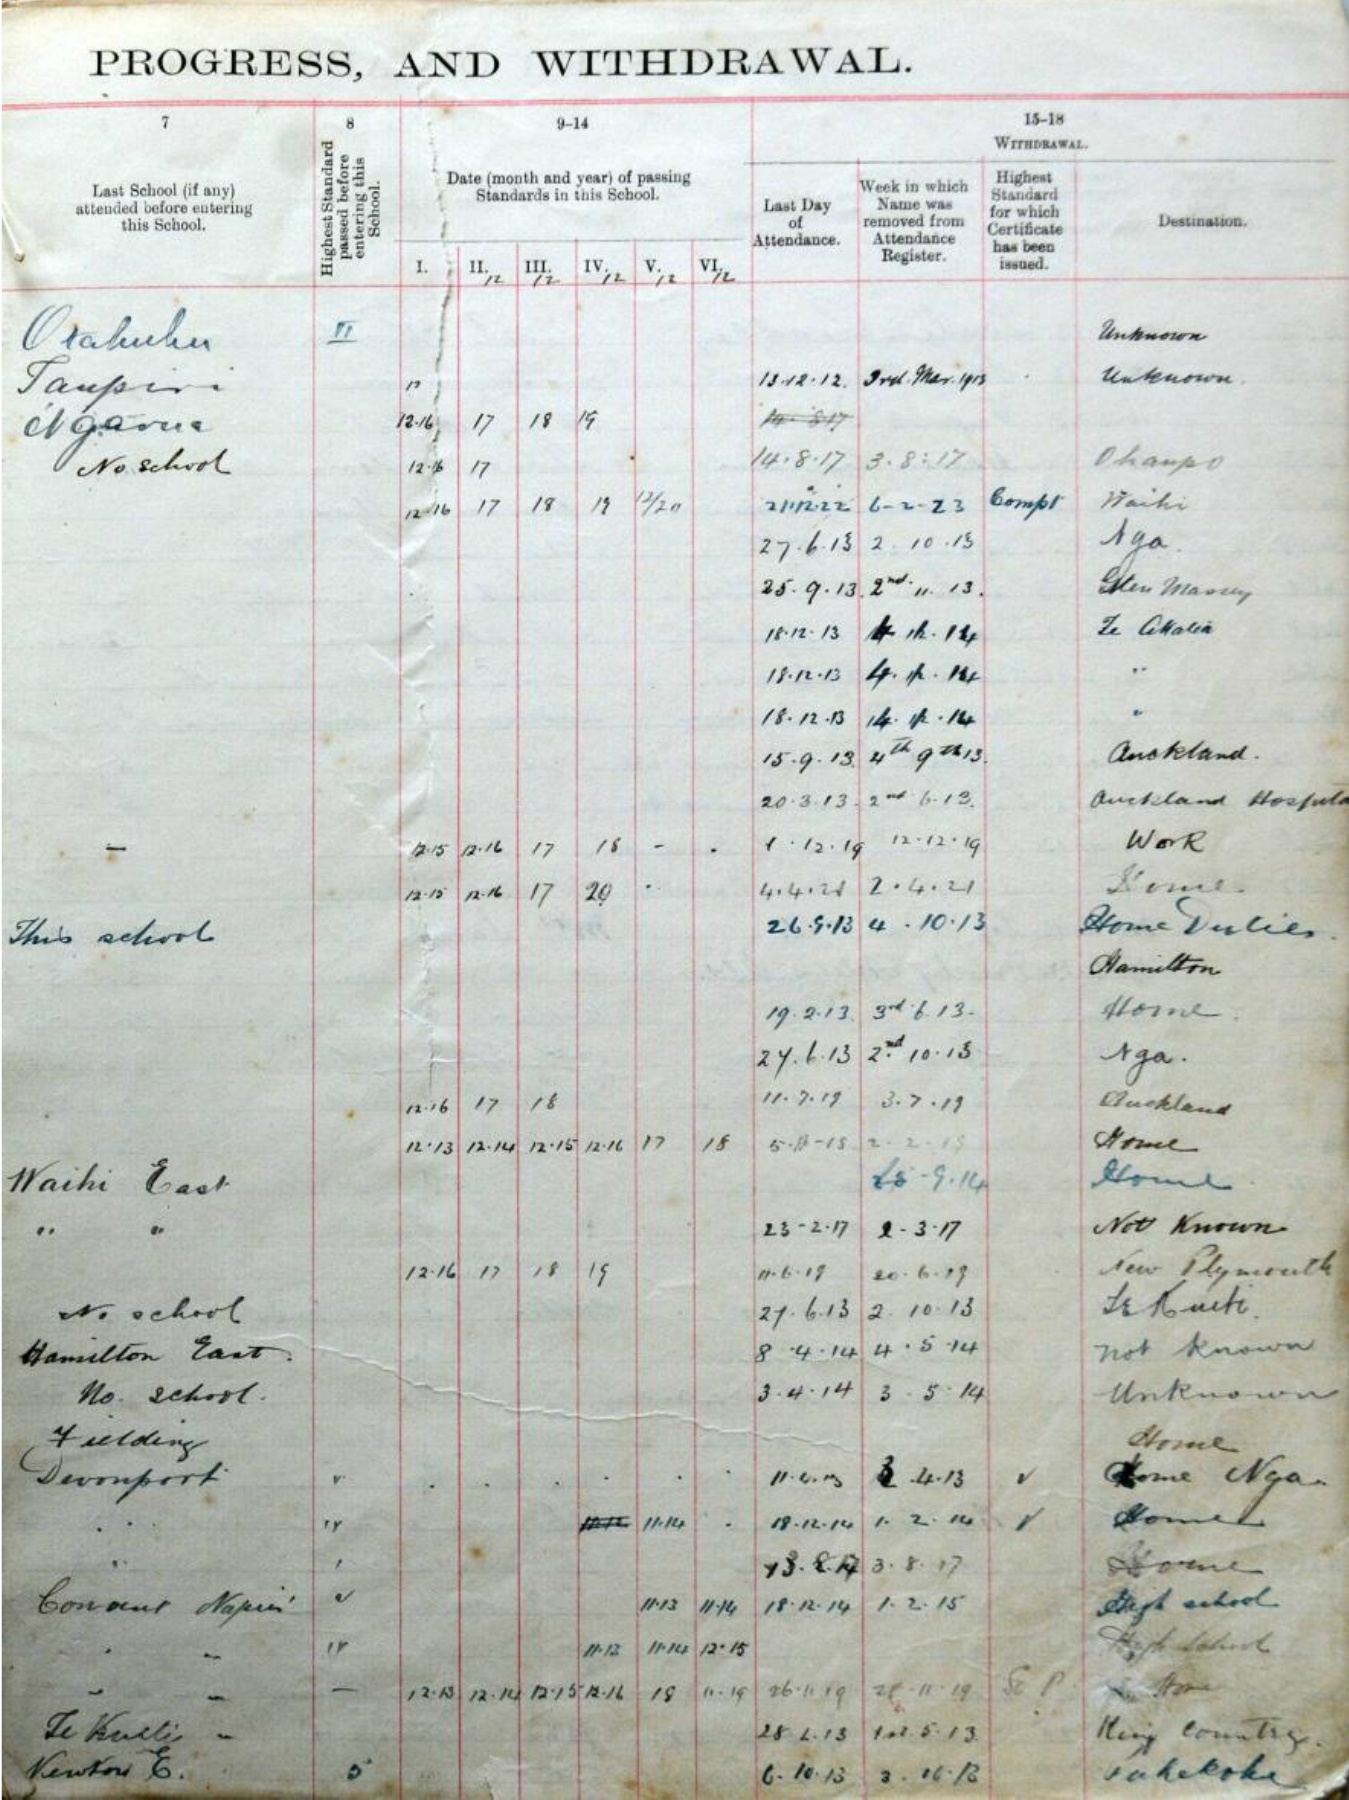 PROGRESS, AND WITHDRAWAL.
7 8 9–14 15–18
WITHDRAWAL.
Last School (if any) attended before entering this School.
Highest Standard passed before entering this School.
Date (month and year) of passing Standards in this School.
Last Day of Attendance.
Week in which Name was removed from Attendance Register.
Highest Standard for which Certificate has been issued.
Destination.
I. II. /12 III. /12 IV. /12 V. /12 VI. /12
Otahuhu VI Unknown
Taupiri 13.12.12. 3rd. Mar. 1913 Unknown.
12.16 17 18 19
No school 12.16 17 14.8.17 3.8.17 Ohaupo
12.16 17 18 19 12/20 21.12.22 6-2-23 Compt Waihi
27.6.13 2 10.13 Nga.
25.9.13 2nd 11. 13. Glen Massey
18.12.13
18.12.13 "
18.12.13 "
15.9.13 4th 9th 13. Auckland.
20.3.13. 2nd 6.13. Auckland Hospita
— 12.15 12.16 17 18 - . 1.12.19 12.12.19 Work
12.15 12.16 17 20 4.4.21 2.4.21 Home.
This school 26.9.13 4.10.13 Home Duties.
Hamilton
19.2.13. 3rd 6.13. Home.
27.6.13 2nd 10.13 Nga.
12.16 17 18 11.7.19 3.7.19 Auckland
12.13 12.14 12.15 12.16 17 18 Home
Waihi East 9.14 Home.
" " 23-2-17 2-3-17 Not Known
12.16 17 18 19 11.6.19 20.6.19 New Plymouth
No school 27.6.13 2. 10.13 Te Kuiti.
Hamilton East. 8.4.14 4.5.14 not known
No. school. 3.4.14 3.5.14 Unknown
Fielding Home
Devonport V 4.13 ✓ Home Nga.
" IV 11.14 18.12.14 1. 2. 14 ✓ Home
" 3.8.17 Home
Convent Napier V 11.13 11.14 18.12.14 1.2.15 High school
" " IV 11.13 11.14 12.15 High School
" " — 12.13 12.14 12.15 12.16 18 11.19 26.11.19 28.11.19 Home
Te Kuiti " 1st. 5.13 King Country.
Newton E. 5 6.10.13 3.10.13